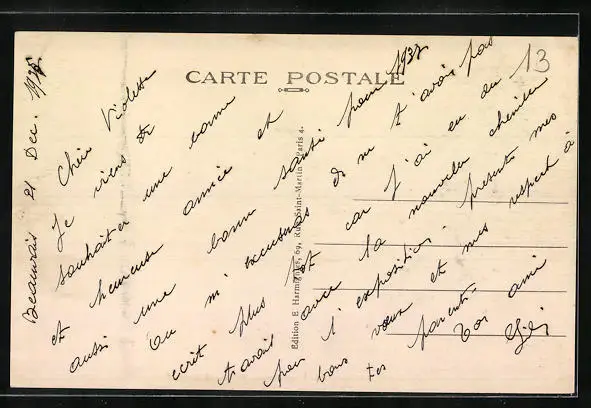 CARTE POSTALE
13
Beauvais 21 Dec. 193
Chère Violette
Je viens te
souhaiter une bonne
et heureuse année et
aussi une bonne santé pour 1937
Tu m'excuseras de ne t'avoir pas
écrit plus tôt car j'ai eu du
travail avec la nouvelle chemise
pour l'exposition. présente mes
bons vœux et mes respect à
tes parents.
Ton ami
Edition E. Harmignies, 69, Rue Saint-Martin, Paris 4.